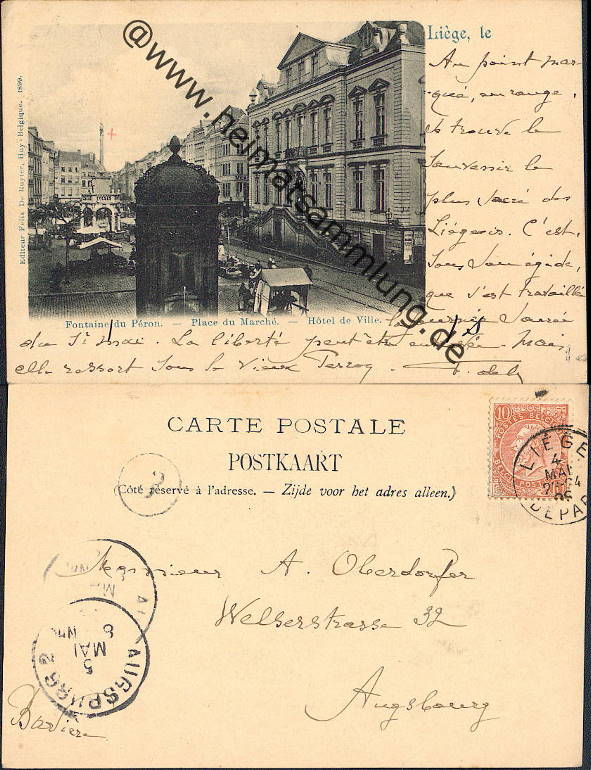 Liège, le
Au point mar-
qué, en rouge,
se trouve le
souvenir le
plus sacré des
Liégeois. C'est,
sous son égide,
que s'est
du 1r mai. La liberté peut être Mais
elle ressort sous le vieux Perron
Editeur Félix De Ruyter, Huy-Belgique. 1899.
Fontaine du Péron. — Place du Marché. — Hôtel de Ville.
@www.heimatsammlung.de
CARTE POSTALE
POSTKAART
(Côté réservé à l'adresse. — Zijde voor het adres alleen.)
10
LIÈGE
4
MAI
DEPART
Monsieur A. Oberdorfer
Welserstrasse 32
Augsbourg
Bavière
AUGSBURG 2
5
MAI
8